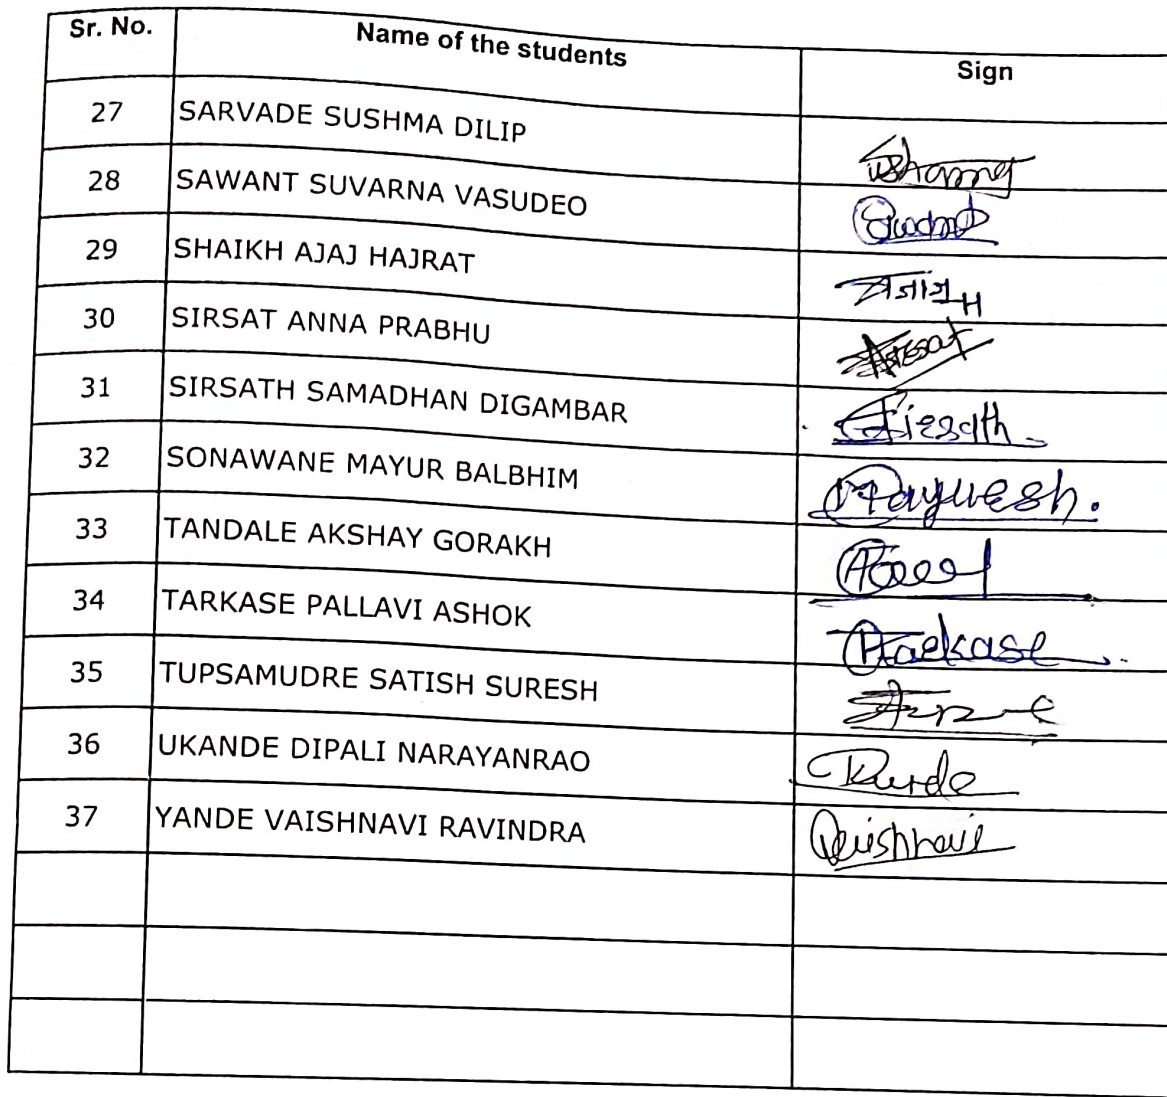 Sr. No. Name of the students Sign
27 SARVADE SUSHMA DILIP
28 SAWANT SUVARNA VASUDEO
29 SHAIKH AJAJ HAJRAT
30 SIRSAT ANNA PRABHU
31 SIRSATH SAMADHAN DIGAMBAR
32 SONAWANE MAYUR BALBHIM
33 TANDALE AKSHAY GORAKH
34 TARKASE PALLAVI ASHOK
35 TUPSAMUDRE SATISH SURESH
36 UKANDE DIPALI NARAYANRAO
37 YANDE VAISHNAVI RAVINDRA